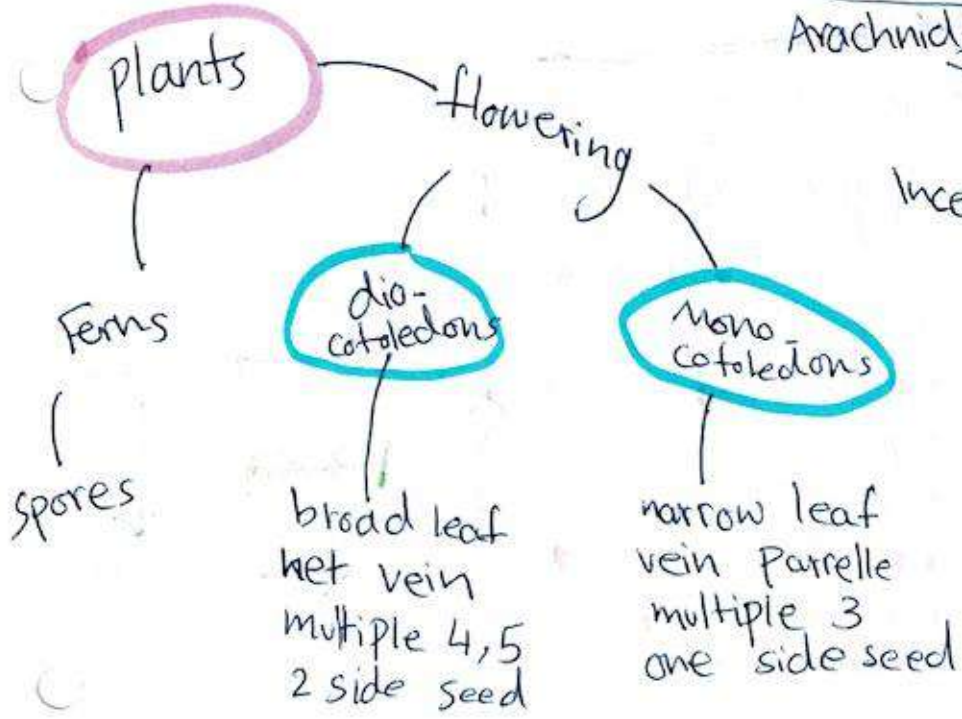 plants
flowering
Arachnid
Ince
Ferns
spores
dio-
cotoledons
Mono-
cotoledons
broad leaf
net vein
multiple 4,5
2 side seed
narrow leaf
vein Parrelle
multiple 3
one side seed